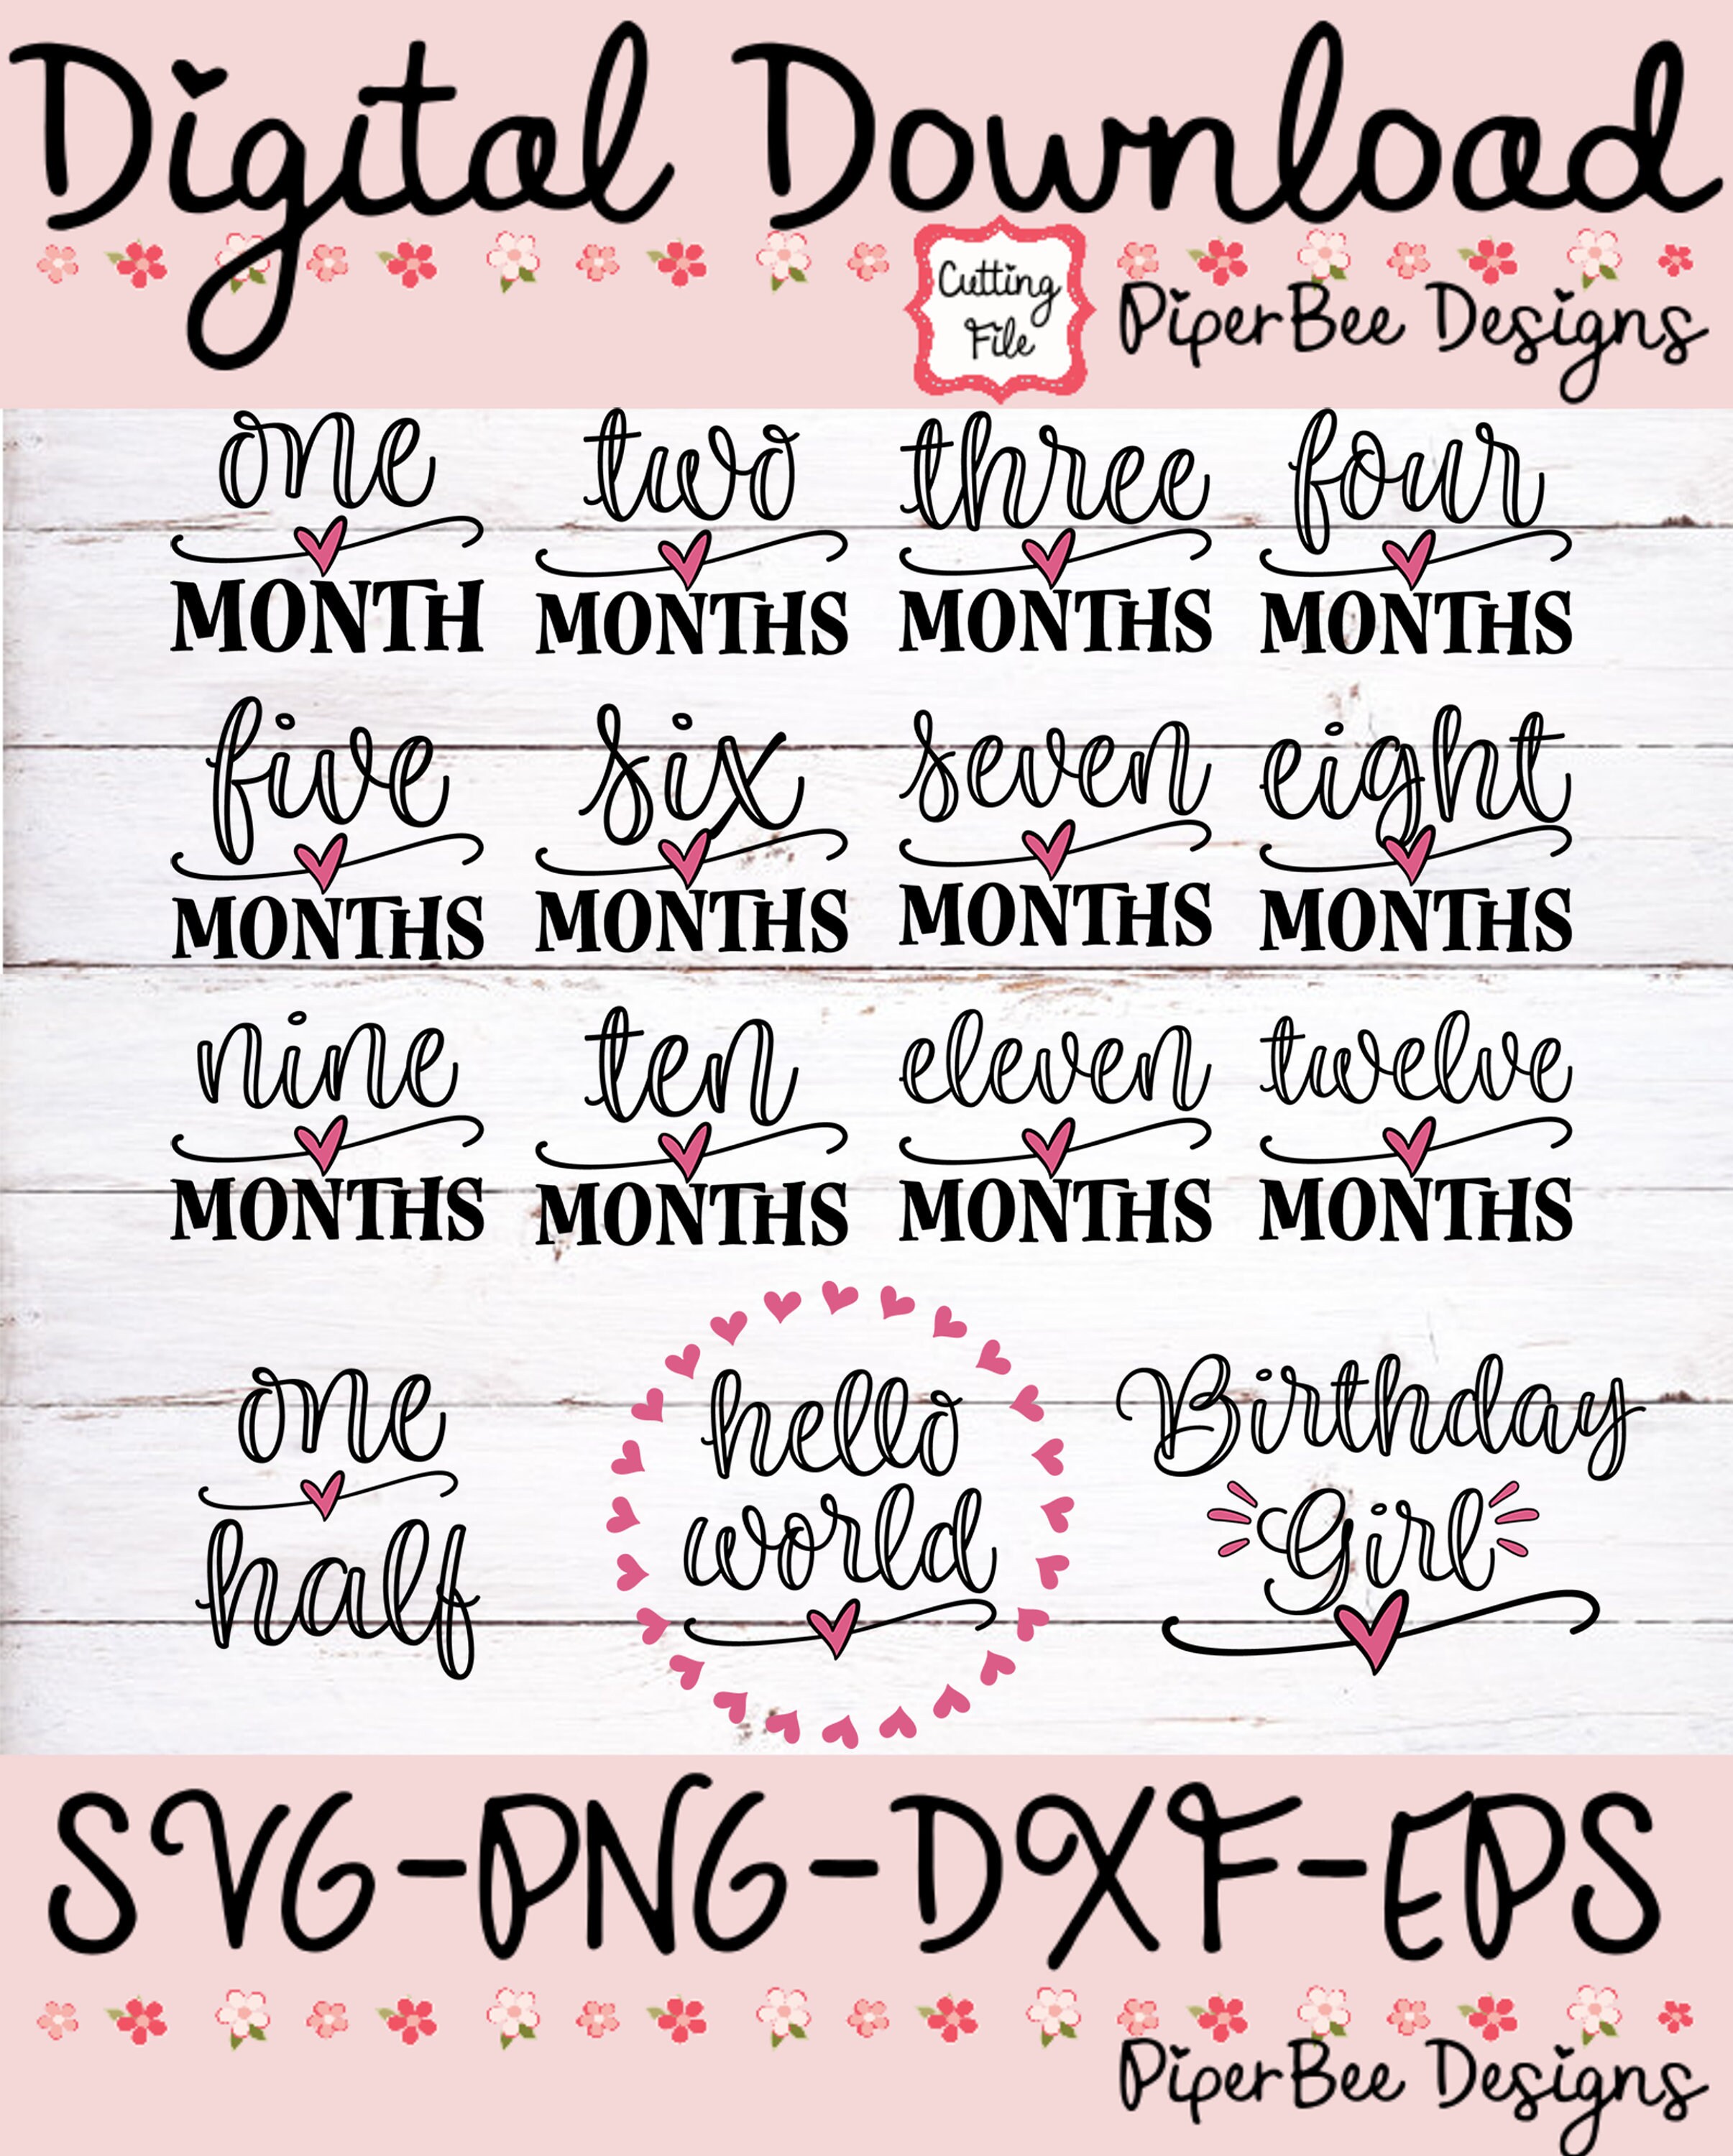 Digital Download
Cutting
File
PiperBee Designs
one two three four
MONTH MONTHS MONTHS MONTHS
five six seven eight
MONTHS MONTHS MONTHS MONTHS
nine ten eleven twelve
MONTHS MONTHS MONTHS MONTHS
one
half
hello
world
Birthday
Girl
SVG-PNG-DXF-EPS
PiperBee Designs